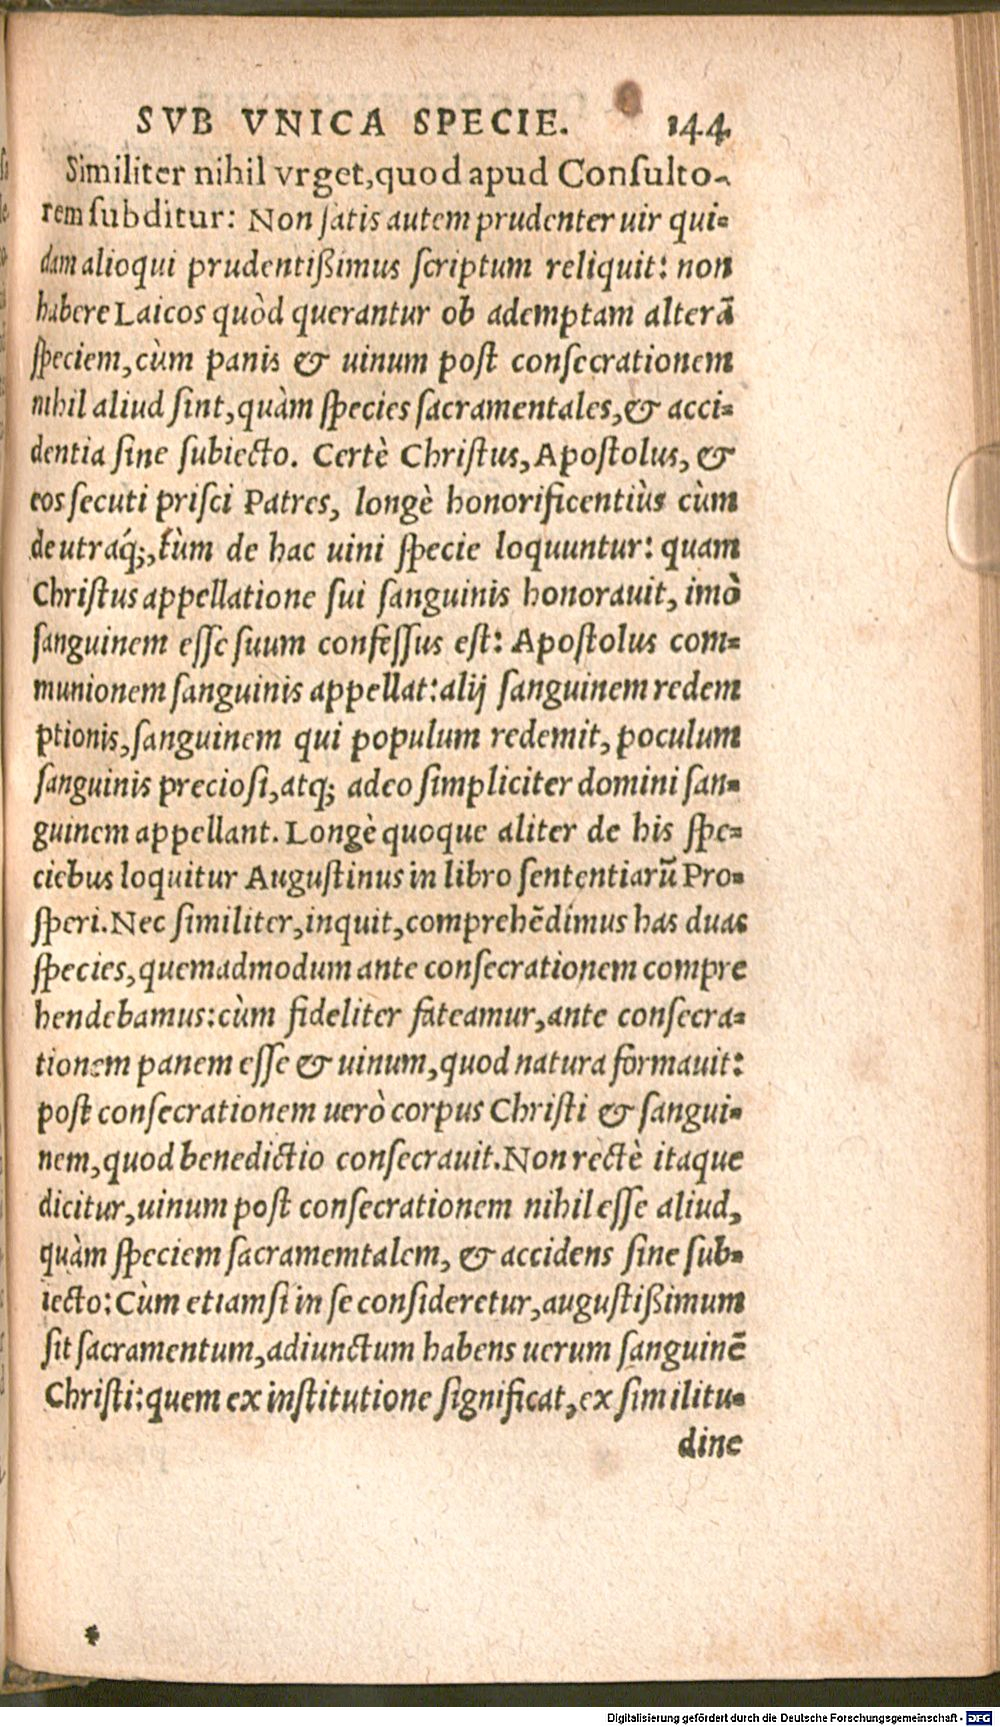 SVB VNICA SPECIE. 144
Similiter nihil vrget, quod apud Conſulto-
rem ſubditur: Non ſatis autem prudenter uir qui-
dam alioqui prudentißimus ſcriptum reliquit: non
habere Laicos quòd querantur ob ademptam alterā
ſpeciem, cùm panis & uinum poſt conſecrationem
nihil aliud ſint, quàm ſpecies ſacramentales, & acci-
dentia ſine ſubiecto. Certè Chriſtus, Apoſtolus, &
eos ſecuti priſci Patres, longè honorificentiùs cùm
de utraq́;, tùm de hac uini ſpecie loquuntur: quam
Chriſtus appellatione ſui ſanguinis honorauit, imò
ſanguinem eſſe ſuum confeſſus eſt: Apoſtolus com-
munionem ſanguinis appellat: alij ſanguinem redem
ptionis, ſanguinem qui populum redemit, poculum
ſanguinis precioſi, atq; adeo ſimpliciter domini ſan-
guinem appellant. Longè quoque aliter de his ſpe-
ciebus loquitur Auguſtinus in libro ſententiarū Pro-
ſperi. Nec ſimiliter, inquit, comprehēdimus has duas
ſpecies, quemadmodum ante conſecrationem compre
hendebamus: cùm fideliter fateamur, ante conſecra-
tionem panem eſſe & uinum, quod natura formauit:
poſt conſecrationem uerò corpus Chriſti & ſangui-
nem, quod benedictio conſecrauit. Non rectè itaque
dicitur, uinum poſt conſecrationem nihil eſſe aliud,
quàm ſpeciem ſacramemtalem, & accidens ſine ſub-
iecto: Cùm etiamſi in ſe conſideretur, auguſtißimum
ſit ſacramentum, adiunctum habens uerum ſanguinē
Chriſti: quem ex inſtitutione ſignificat, ex ſimilitu-
dine
*
Digitalisierung gefördert durch die Deutsche Forschungsgemeinschaft - DFG